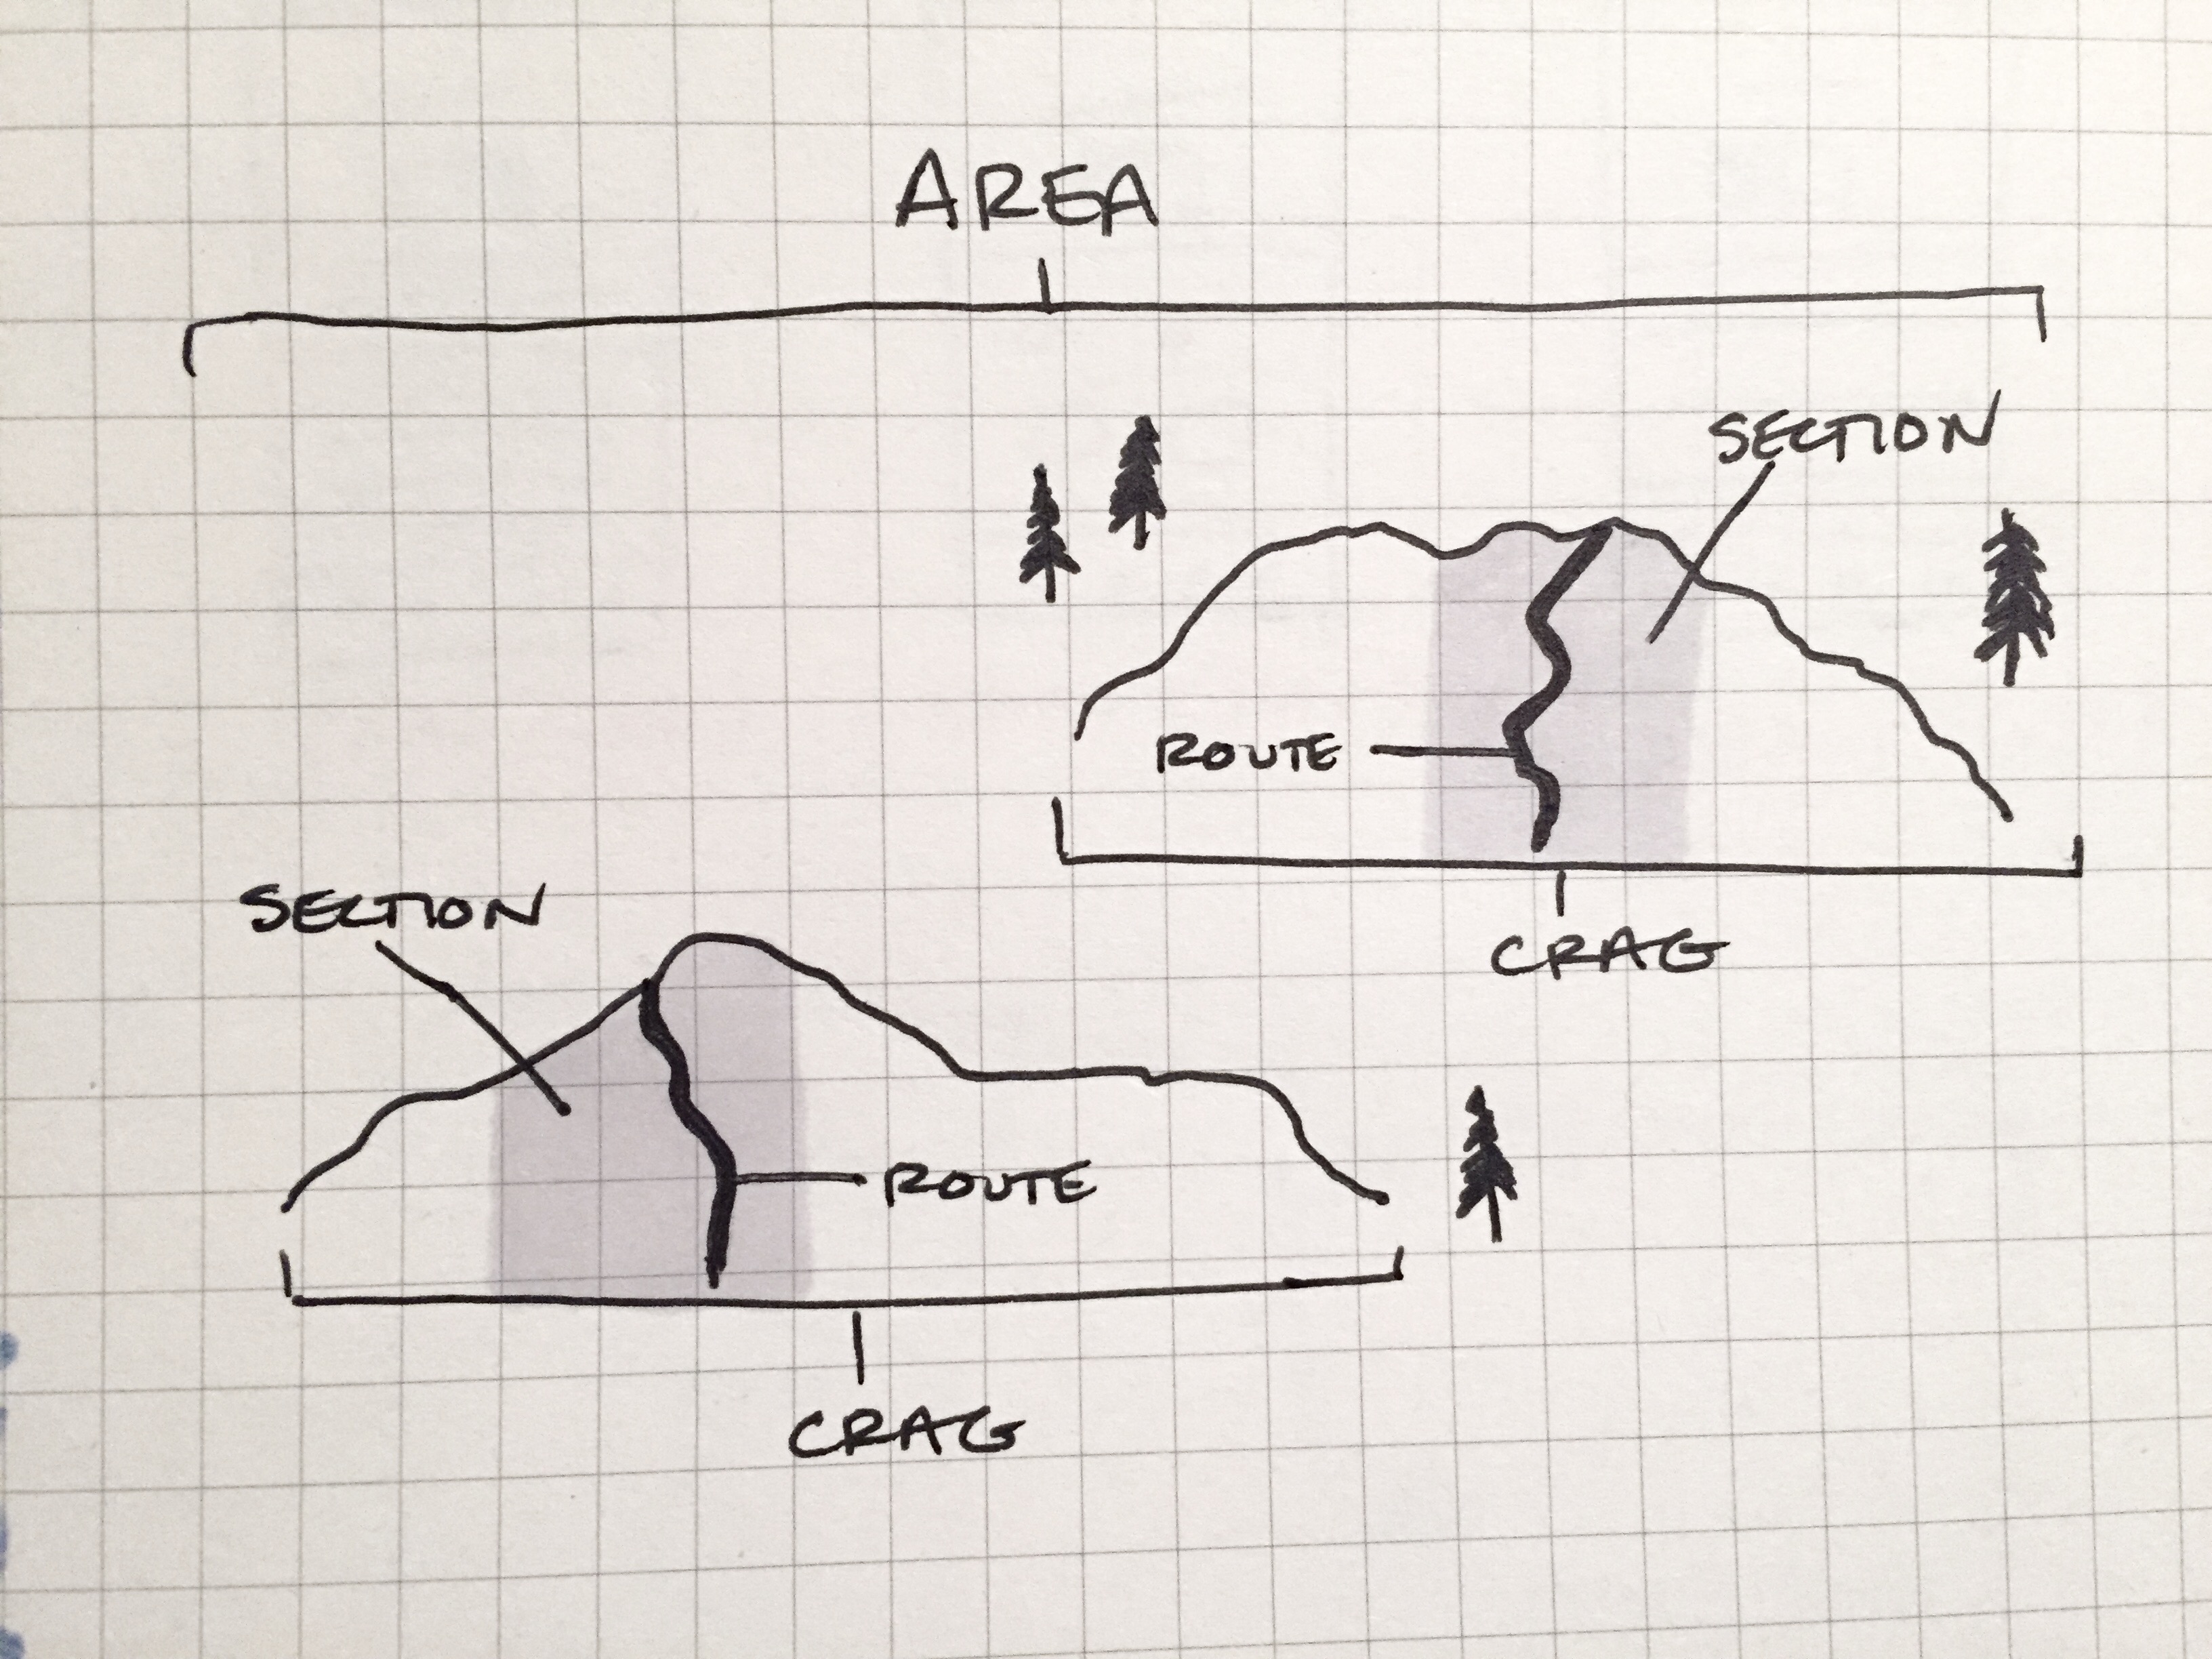 AREA
SECTION
ROUTE
CRAG
SECTION
ROUTE
CRAG